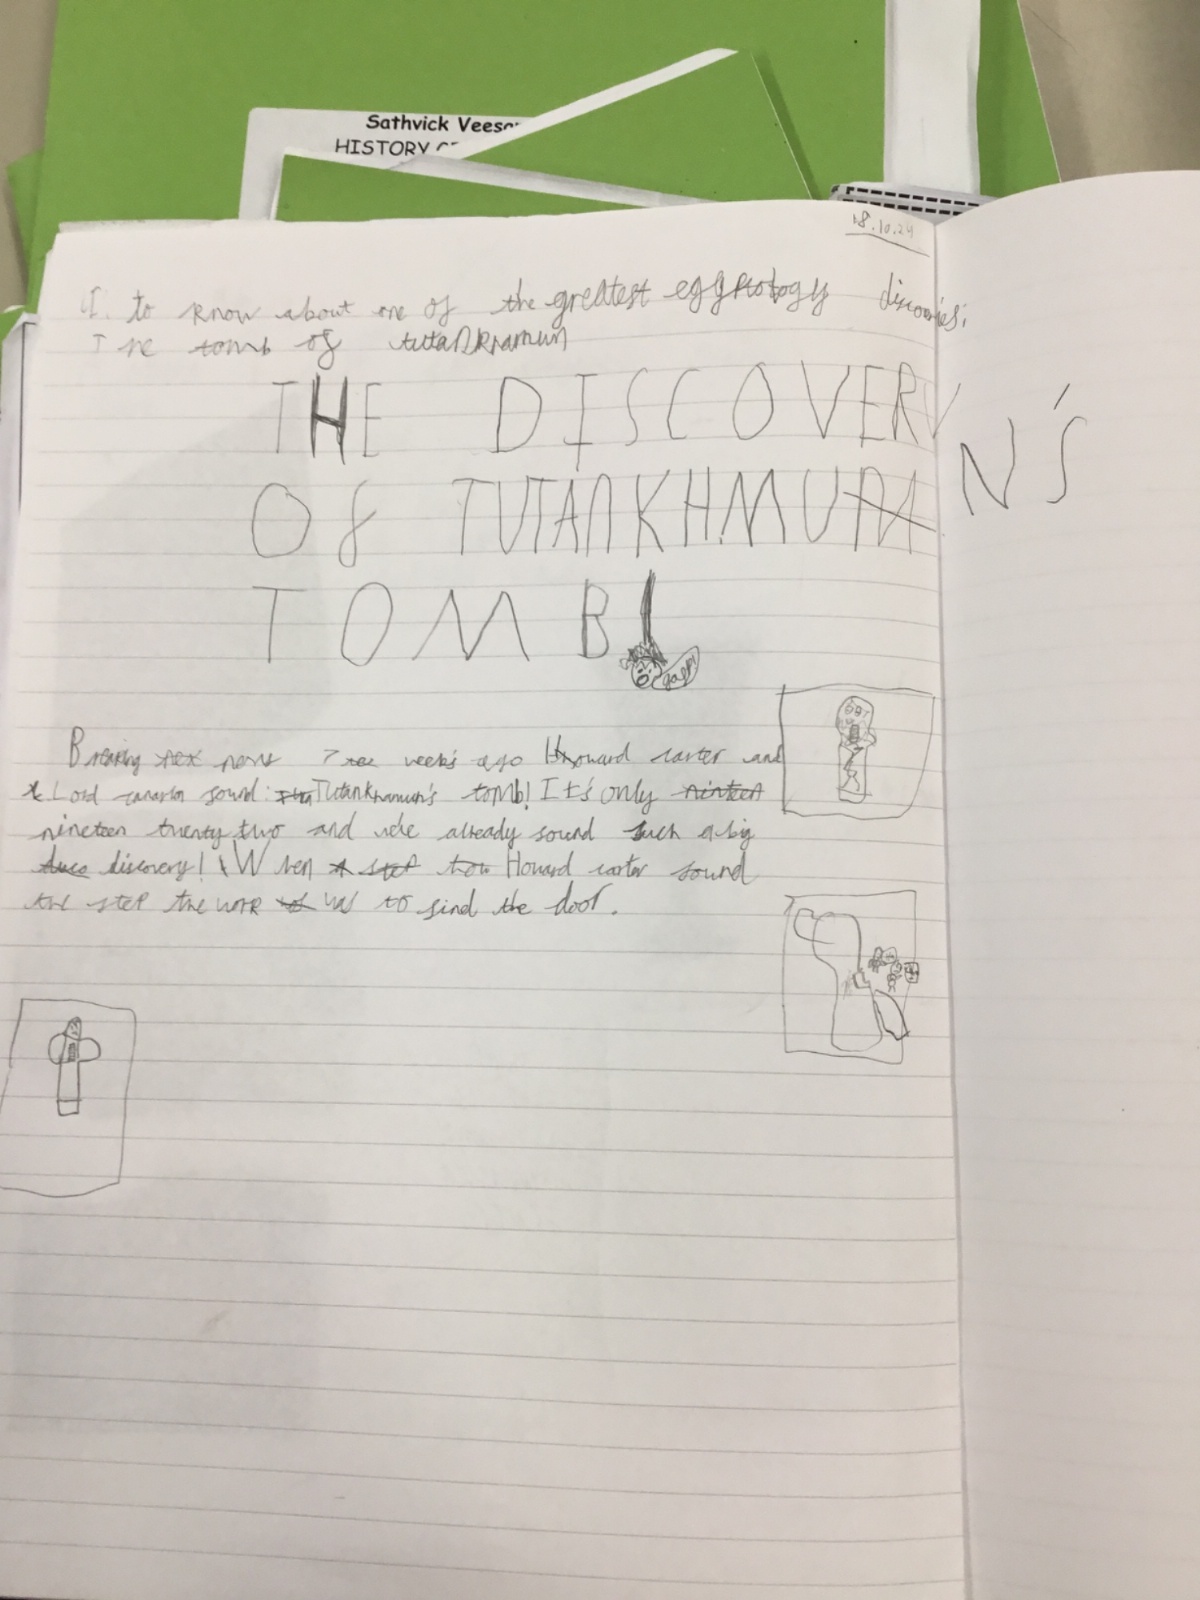 Sathvick Vees
HISTORY
18.10.24
to know about one of the greatest eggptology discoveries:
The tomb of tutankhamun
THE DISCOVERY
Of TUTANKHMUN'S
TOMB!
gasp!
Breaking news 7 weeks ago Howard carter and
Lord found: Tutankhamun's tomb! It's only ninteen
nineteen twenty two and we're already found such a big
discovery! When Howard carter found
the step the work was to find the door.